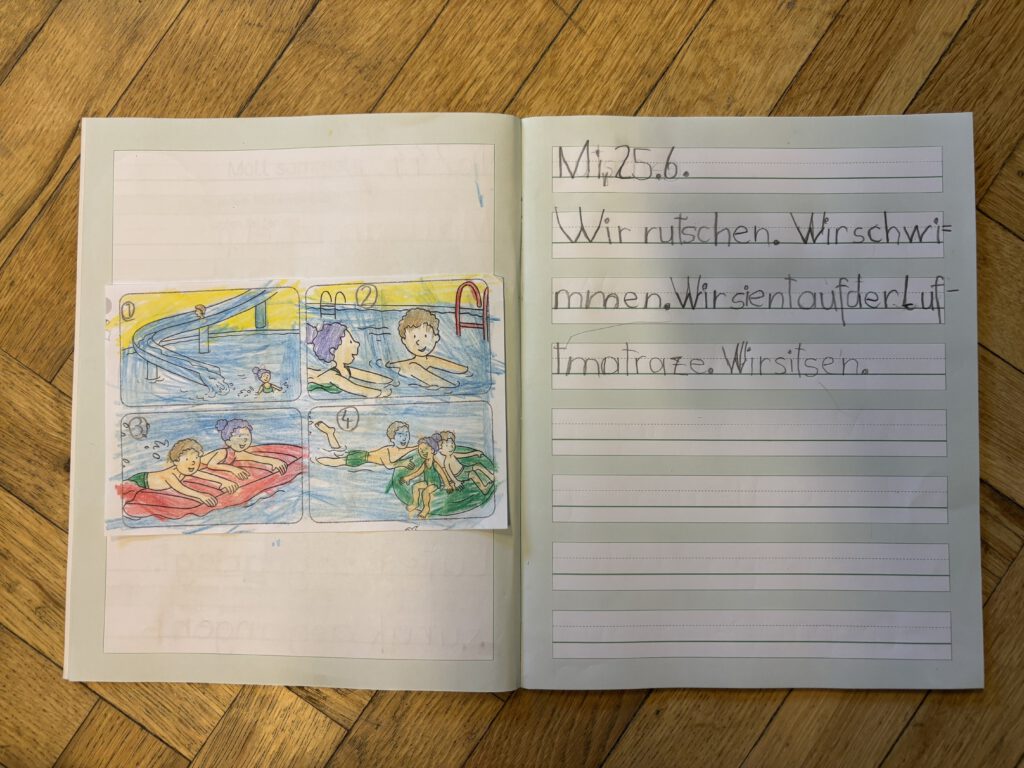 1
2
3
4
Mi, 25.6.
Wir rutschen. Wir schwi=
mmen. Wir sient auf der Luf-
tmatraze. Wir sitsen.